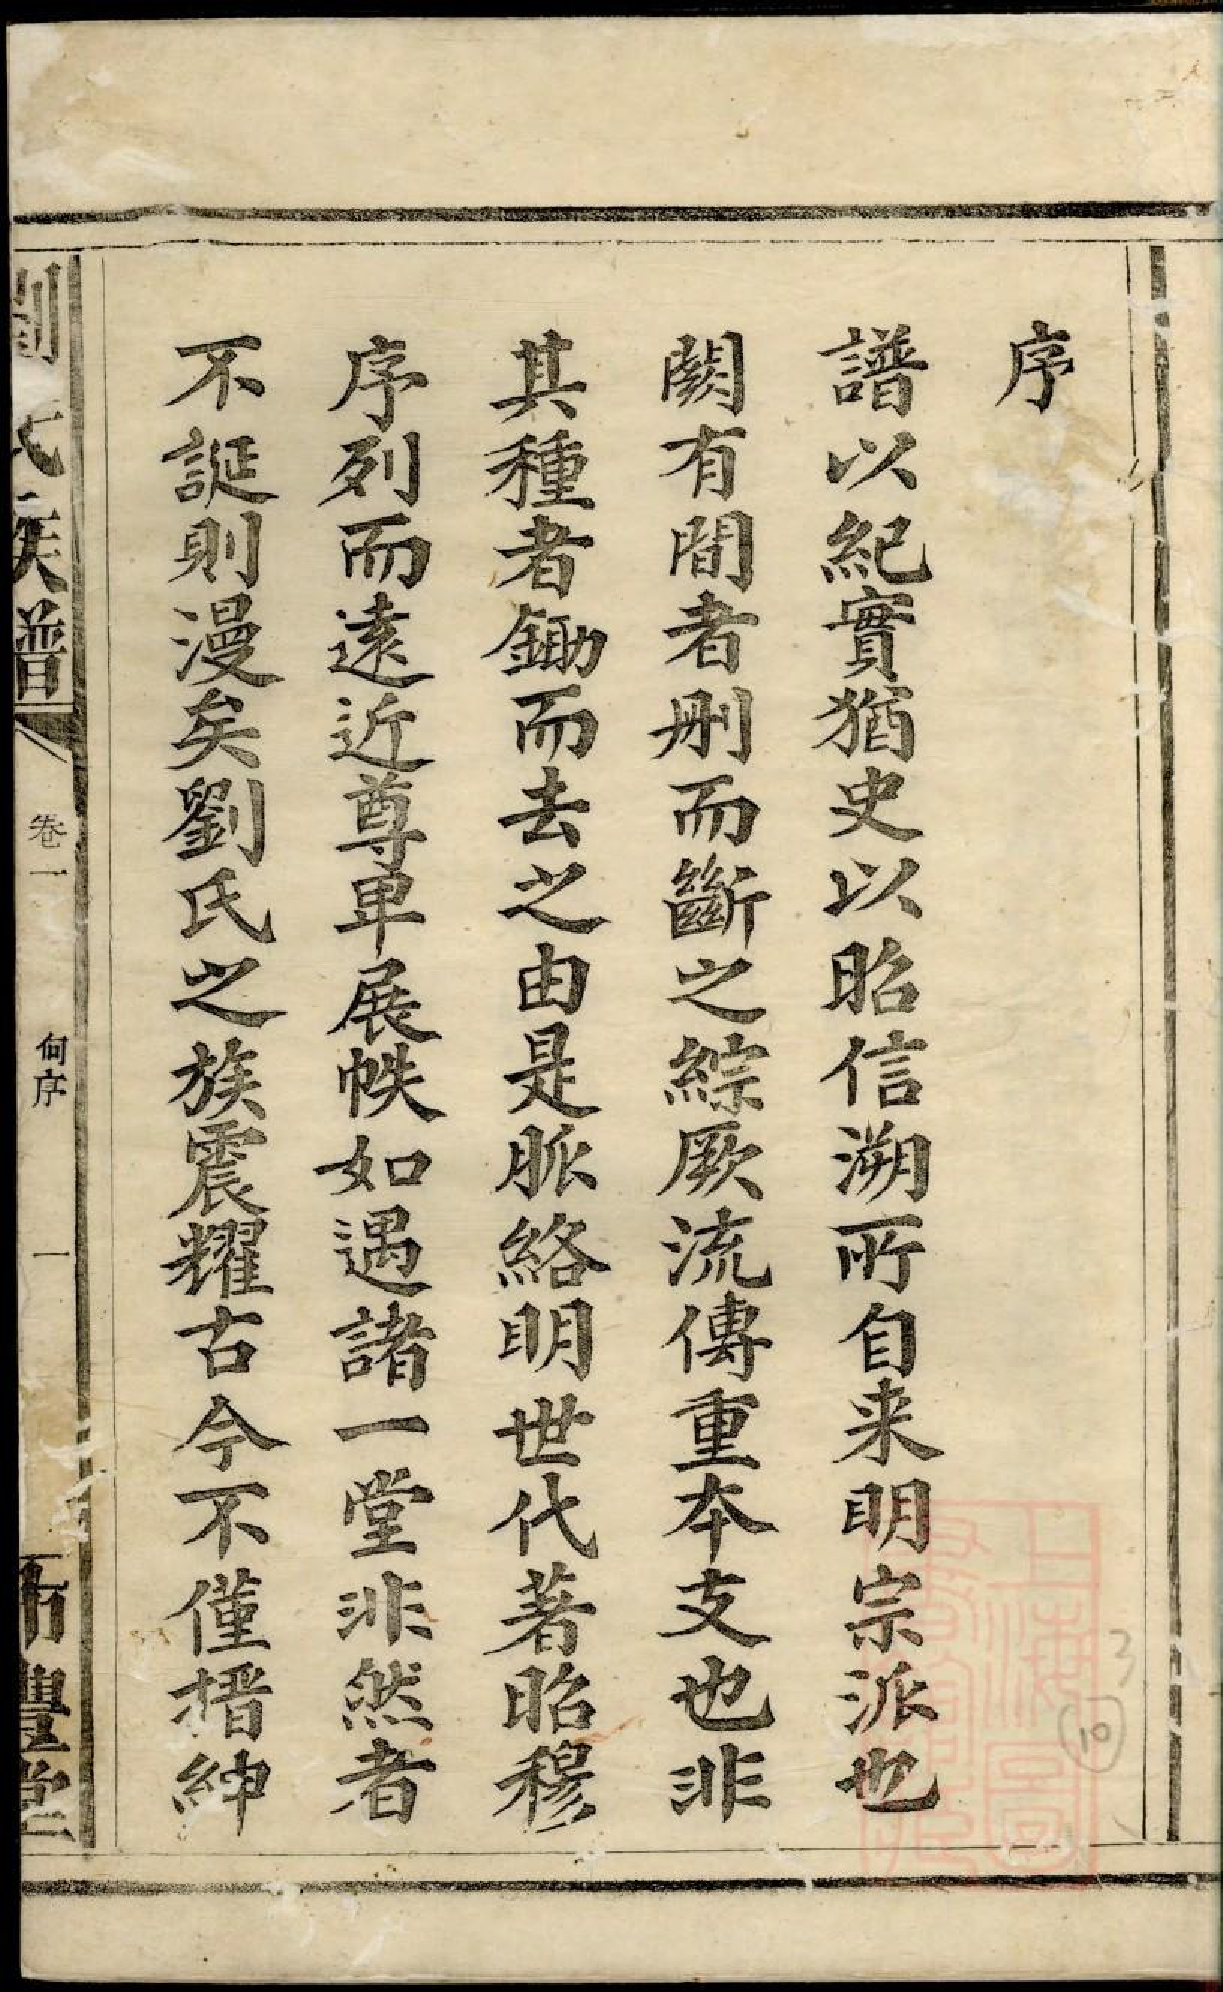 序
譜以紀實猶史以昭信溯所自来明宗派也
闕有間者刪而斷之綜厥流傳重本支也非
其種者鋤而去之由是脈絡明世代著昭穆
序列而遠近尊卑展帙如遇諸一堂非然者
不誕則漫矣劉氏之族震耀古今不僅搢紳
劉氏族譜
卷一
何序
一
豐堂
上海圖
書館藏
3
10